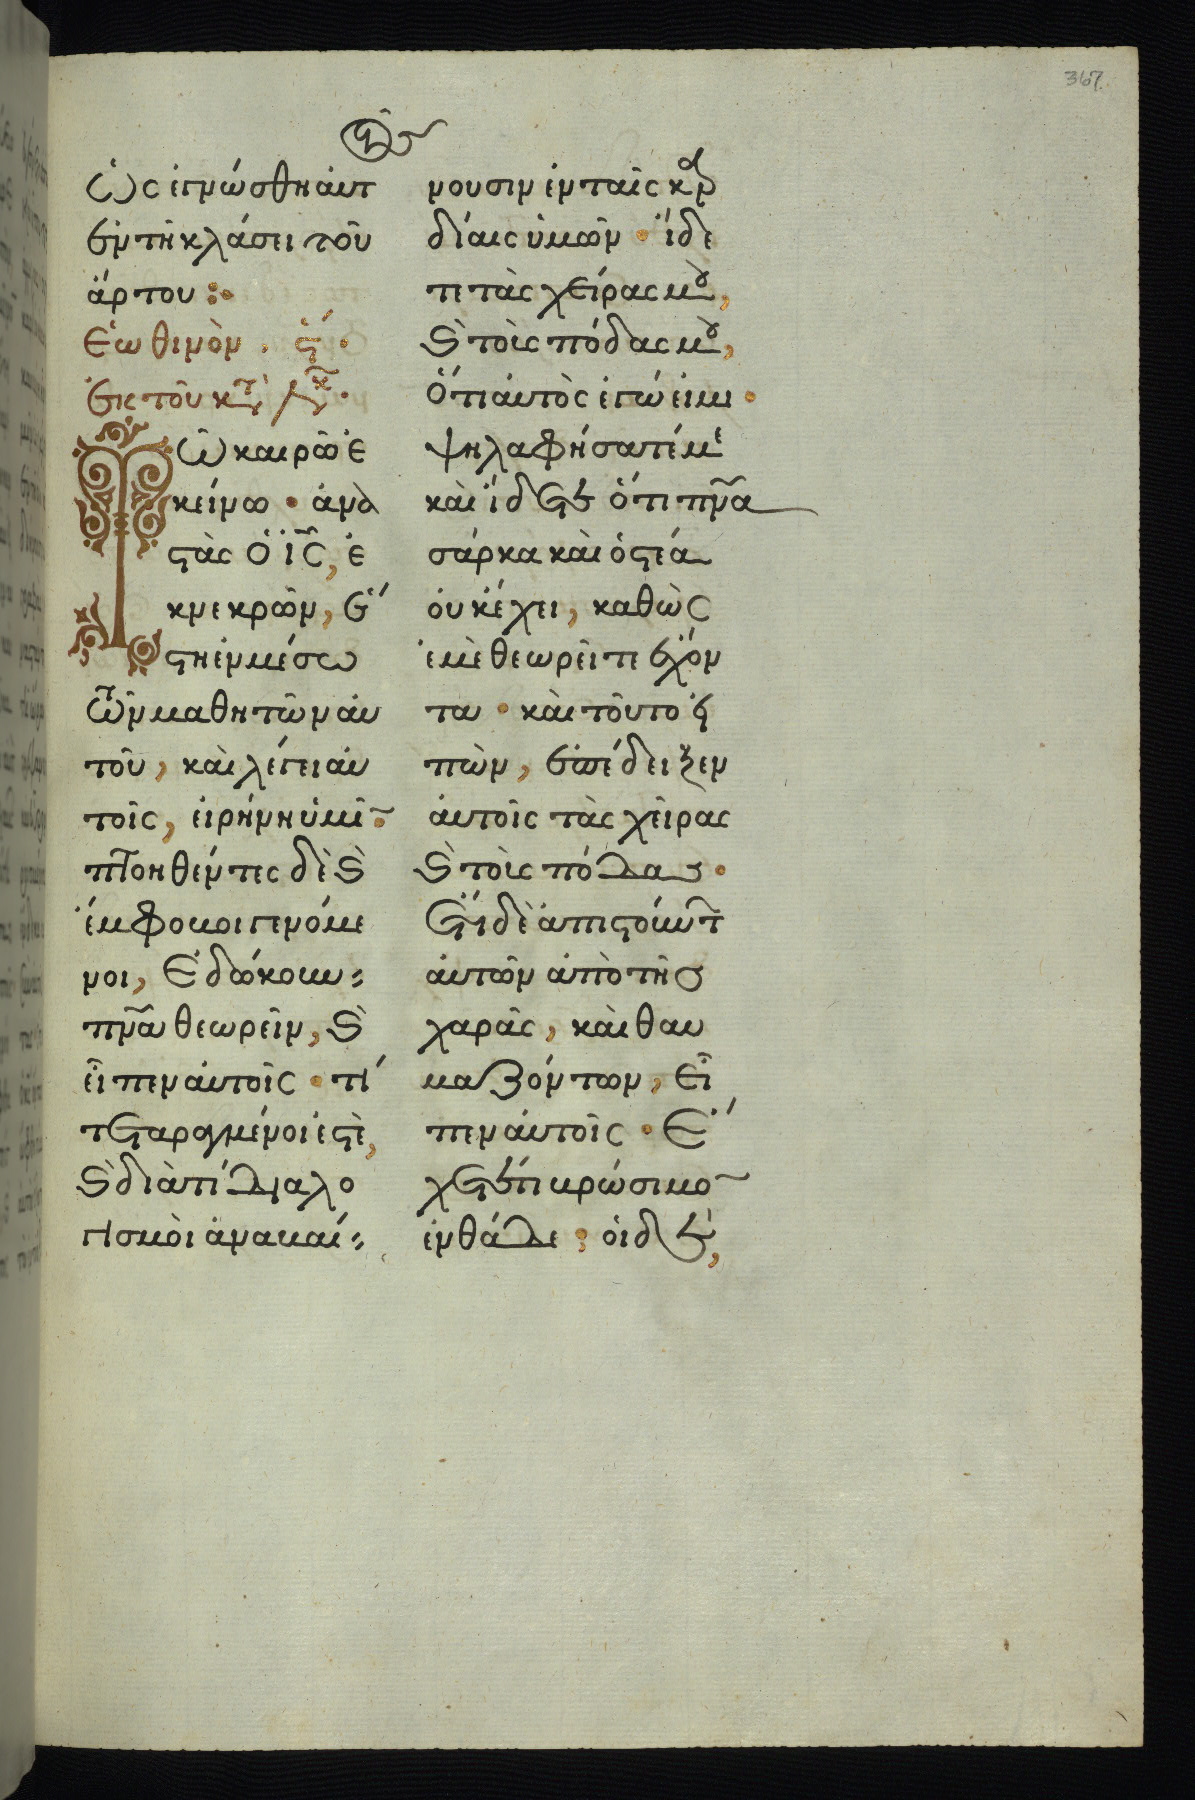 367.
Ὡς ἐγνώσθη αὐτ
ἐν τῇ κλάσει τοῦ
ἄρτου :·
Ἑωθινὸν · ϛ´ ·
Ἐκ τοῦ κτ
Τῶ καιρῶ ἐ
κείνω · ἀνα
ϛὰς ὁ ἰς, ἐ
κ νεκρῶν, ἔ
ϛη ἐν μέσω
τῶν μαθητῶν αὐ
τοῦ, καὶ λέγει αὐ
τοῖς, εἰρήνη ὑμῖ·
πτοηθέντες δὲ ϗ
ἔμφοβοι γενόμε
νοι, ἐδώκουν
πνα θεωρεῖν, ϗ
εἶπεν αὐτοῖς · τί
τεταραγμένοι ἐϛὲ,
ϗ διατί διαλο
γισμοὶ ἀναβαί
νουσιν ἐν ταῖς καρ
δίαις ὑμῶν · ἴδε
τε τὰς χεῖρας μου,
ϗ τοὺς πόδας μου,
ὅτι αὐτὸς ἐγώ εἰμι ·
ψηλαφήσατέ με
καὶ ἴδετε ὅτι πνα
σάρκα καὶ ὀϛέα
οὐκ ἔχει, καθὼς
ἐμὲ θεωρεῖτε ἔχον
τα · καὶ τοῦτο εἰ
πὼν, ἐπέδειξεν
αὐτοῖς τὰς χεῖρας
ϗ τοὺς πόδας ·
ἔτι δὲ ἀπιϛούντ
αὐτῶν ἀπὸ τῆς
χαρᾶς, καὶ θαυ
μαζόντων, εἶ
πεν αὐτοῖς · ἔ
χετέ τι βρώσιμο
ἐνθάδε ; οἱ δὲ,